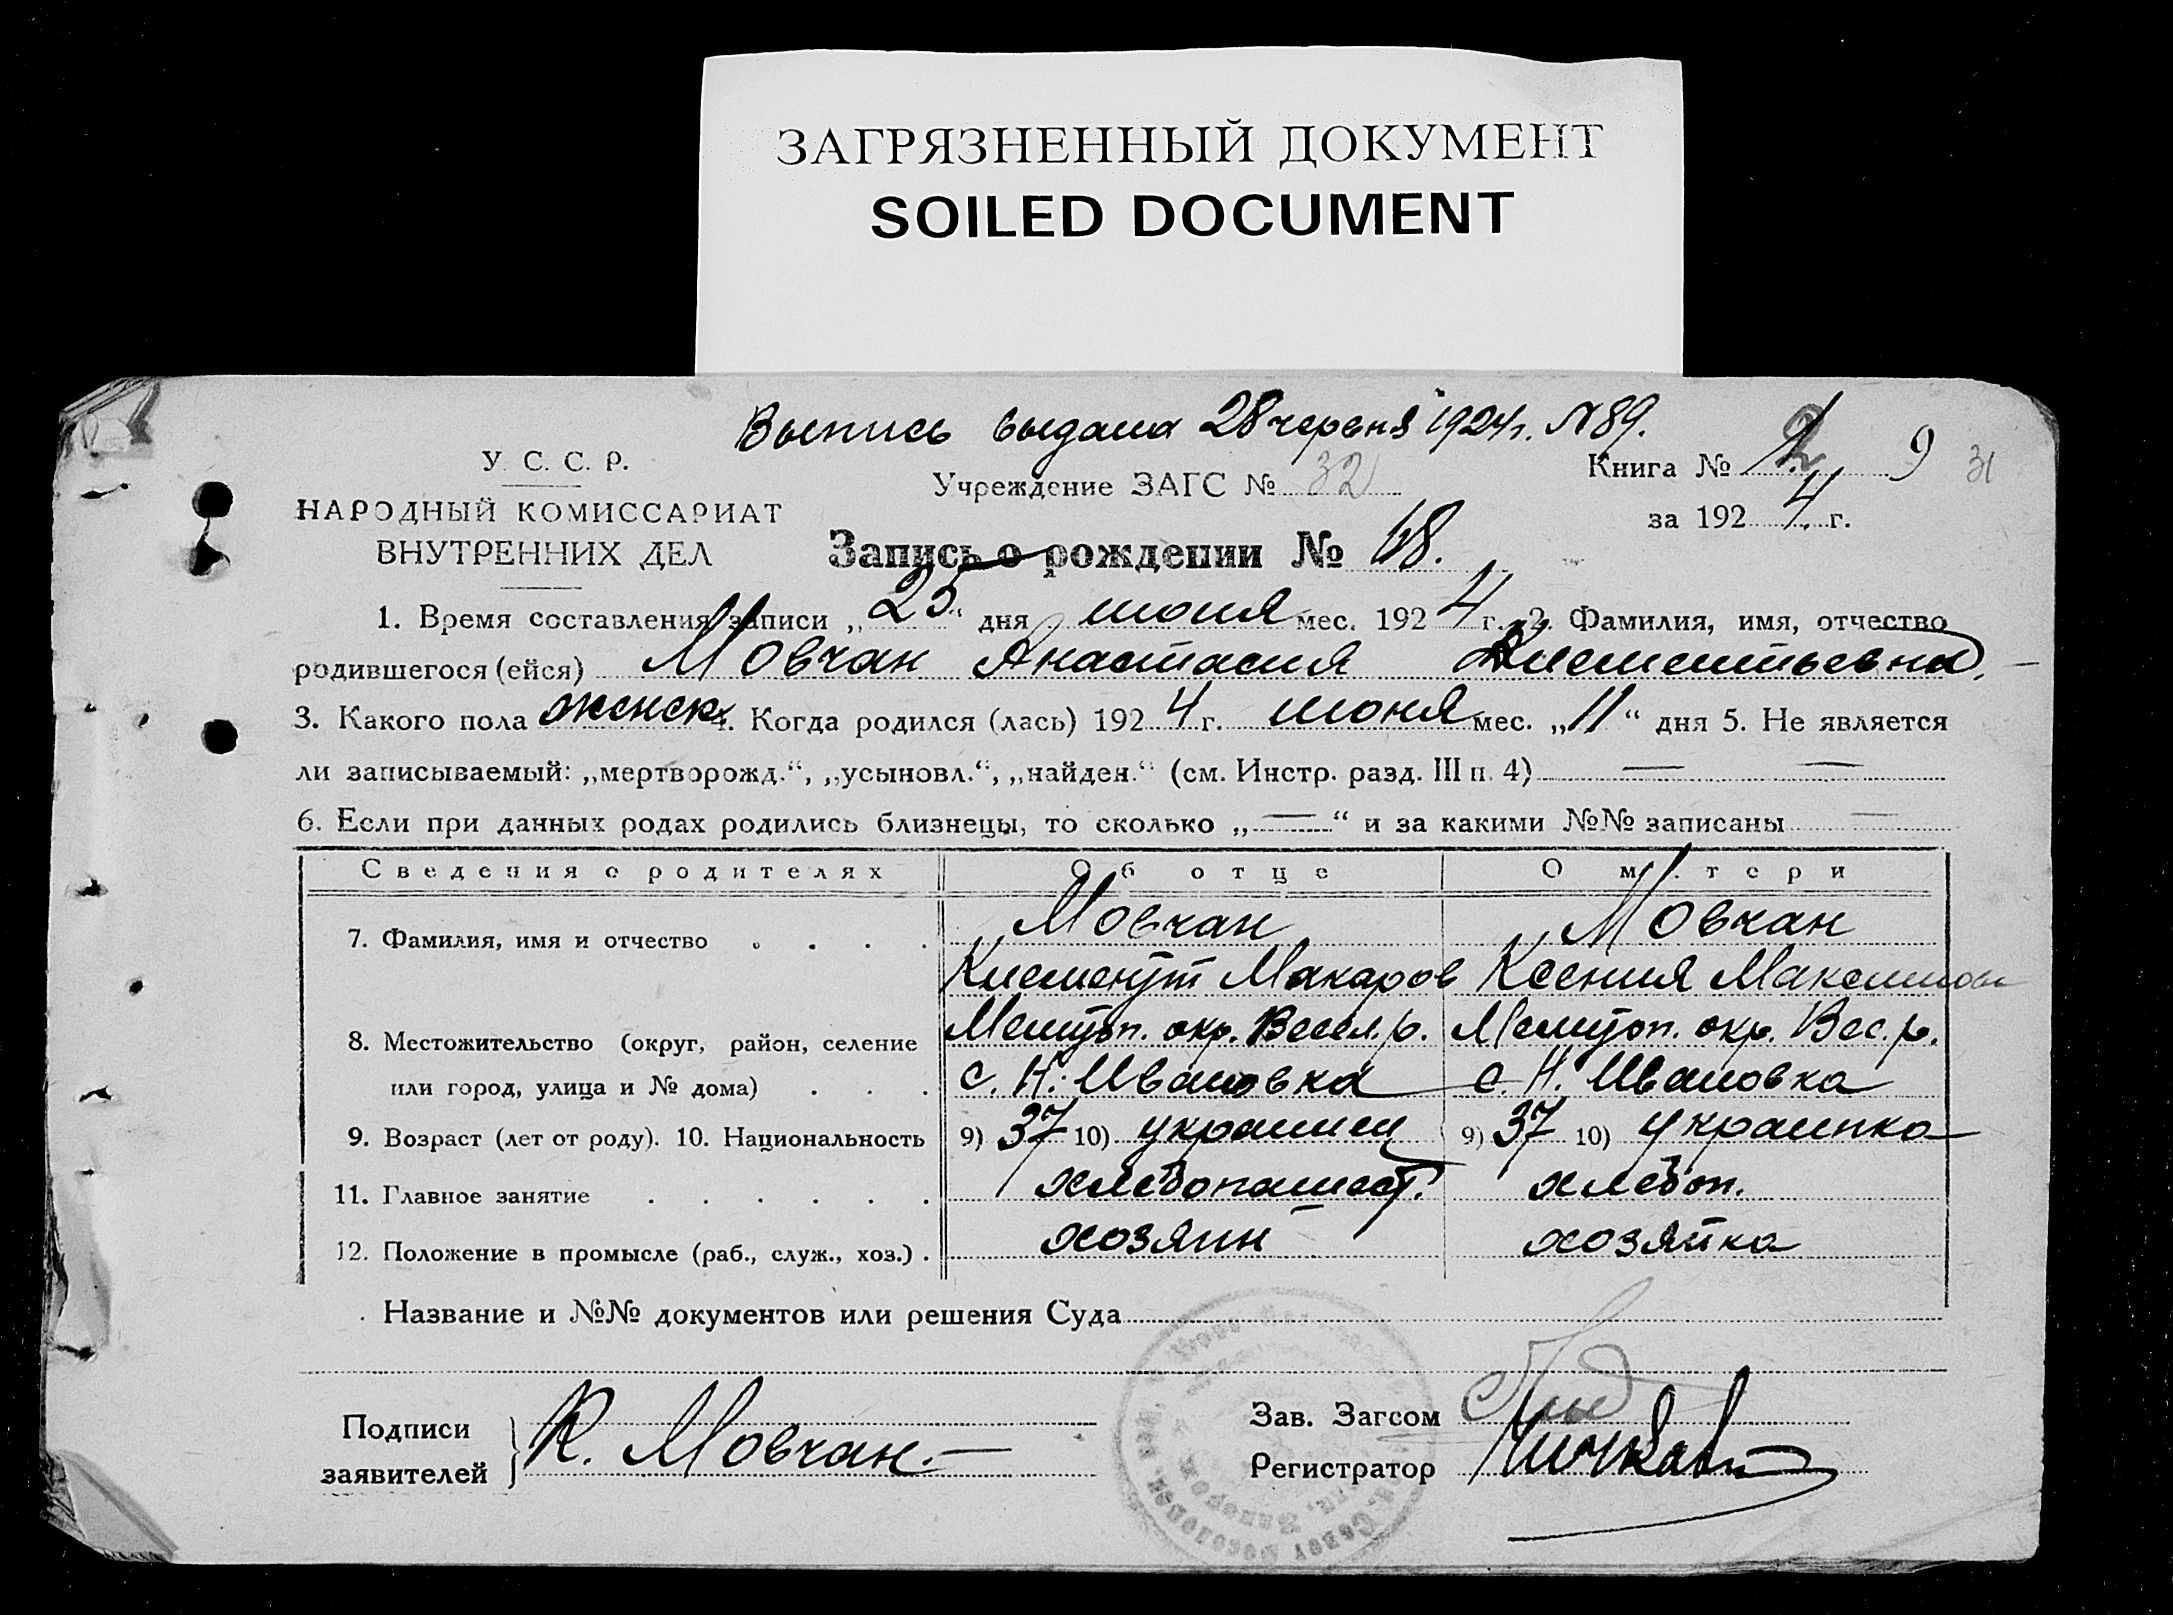 ЗАГРЯЗНЕННЫЙ ДОКУМЕНТ
SOILED DOCUMENT
Выпись выдана 28 червня 1924 г. N 89.
У. С. С. Р.
НАРОДНЫЙ КОМИССАРИАТ
ВНУТРЕННИХ ДЕЛ
Учреждение ЗАГС № 32
Книга № 9 31
за 1924 г.
Запись о рождении № 68.
1. Время составления записи „25“ дня июня мес. 1924 г. 2. Фамилия, имя, отчество
родившегося (ейся) Мовчан Анастасия Клементьевна.
3. Какого пола женск. 4. Когда родился (лась) 1924 г. июня мес. „11“ дня 5. Не является
ли записываемый: „мертворожд.“, „усыновл.“, „найден.“ (см. Инстр. разд. III п. 4) — —
6. Если при данных родах родились близнецы, то сколько „—“ и за какими №№ записаны —
Сведения о родителях Об отце О матери
7. Фамилия, имя и отчество . . . . Мовчан Мовчан
Клементт Макаров Ксения Максимов
8. Местожительство (округ, район, селение Мелитоп. окр. Весел. р. Мелитоп. окр. Вес. р.
или город, улица и № дома) . . . с. Н. Ивановка с. Н. Ивановка
9. Возраст (лет от роду). 10. Национальность 9) 37 10) украинец 9) 37 10) украинка
11. Главное занятие . . . . . . хлебопашест. хлебоп.
12. Положение в промысле (раб., служ., хоз.) . хозяин хозяйка
Название и №№ документов или решения Суда
Подписи
заявителей
К. Мовчан. —
Зав. Загсом
Регистратор